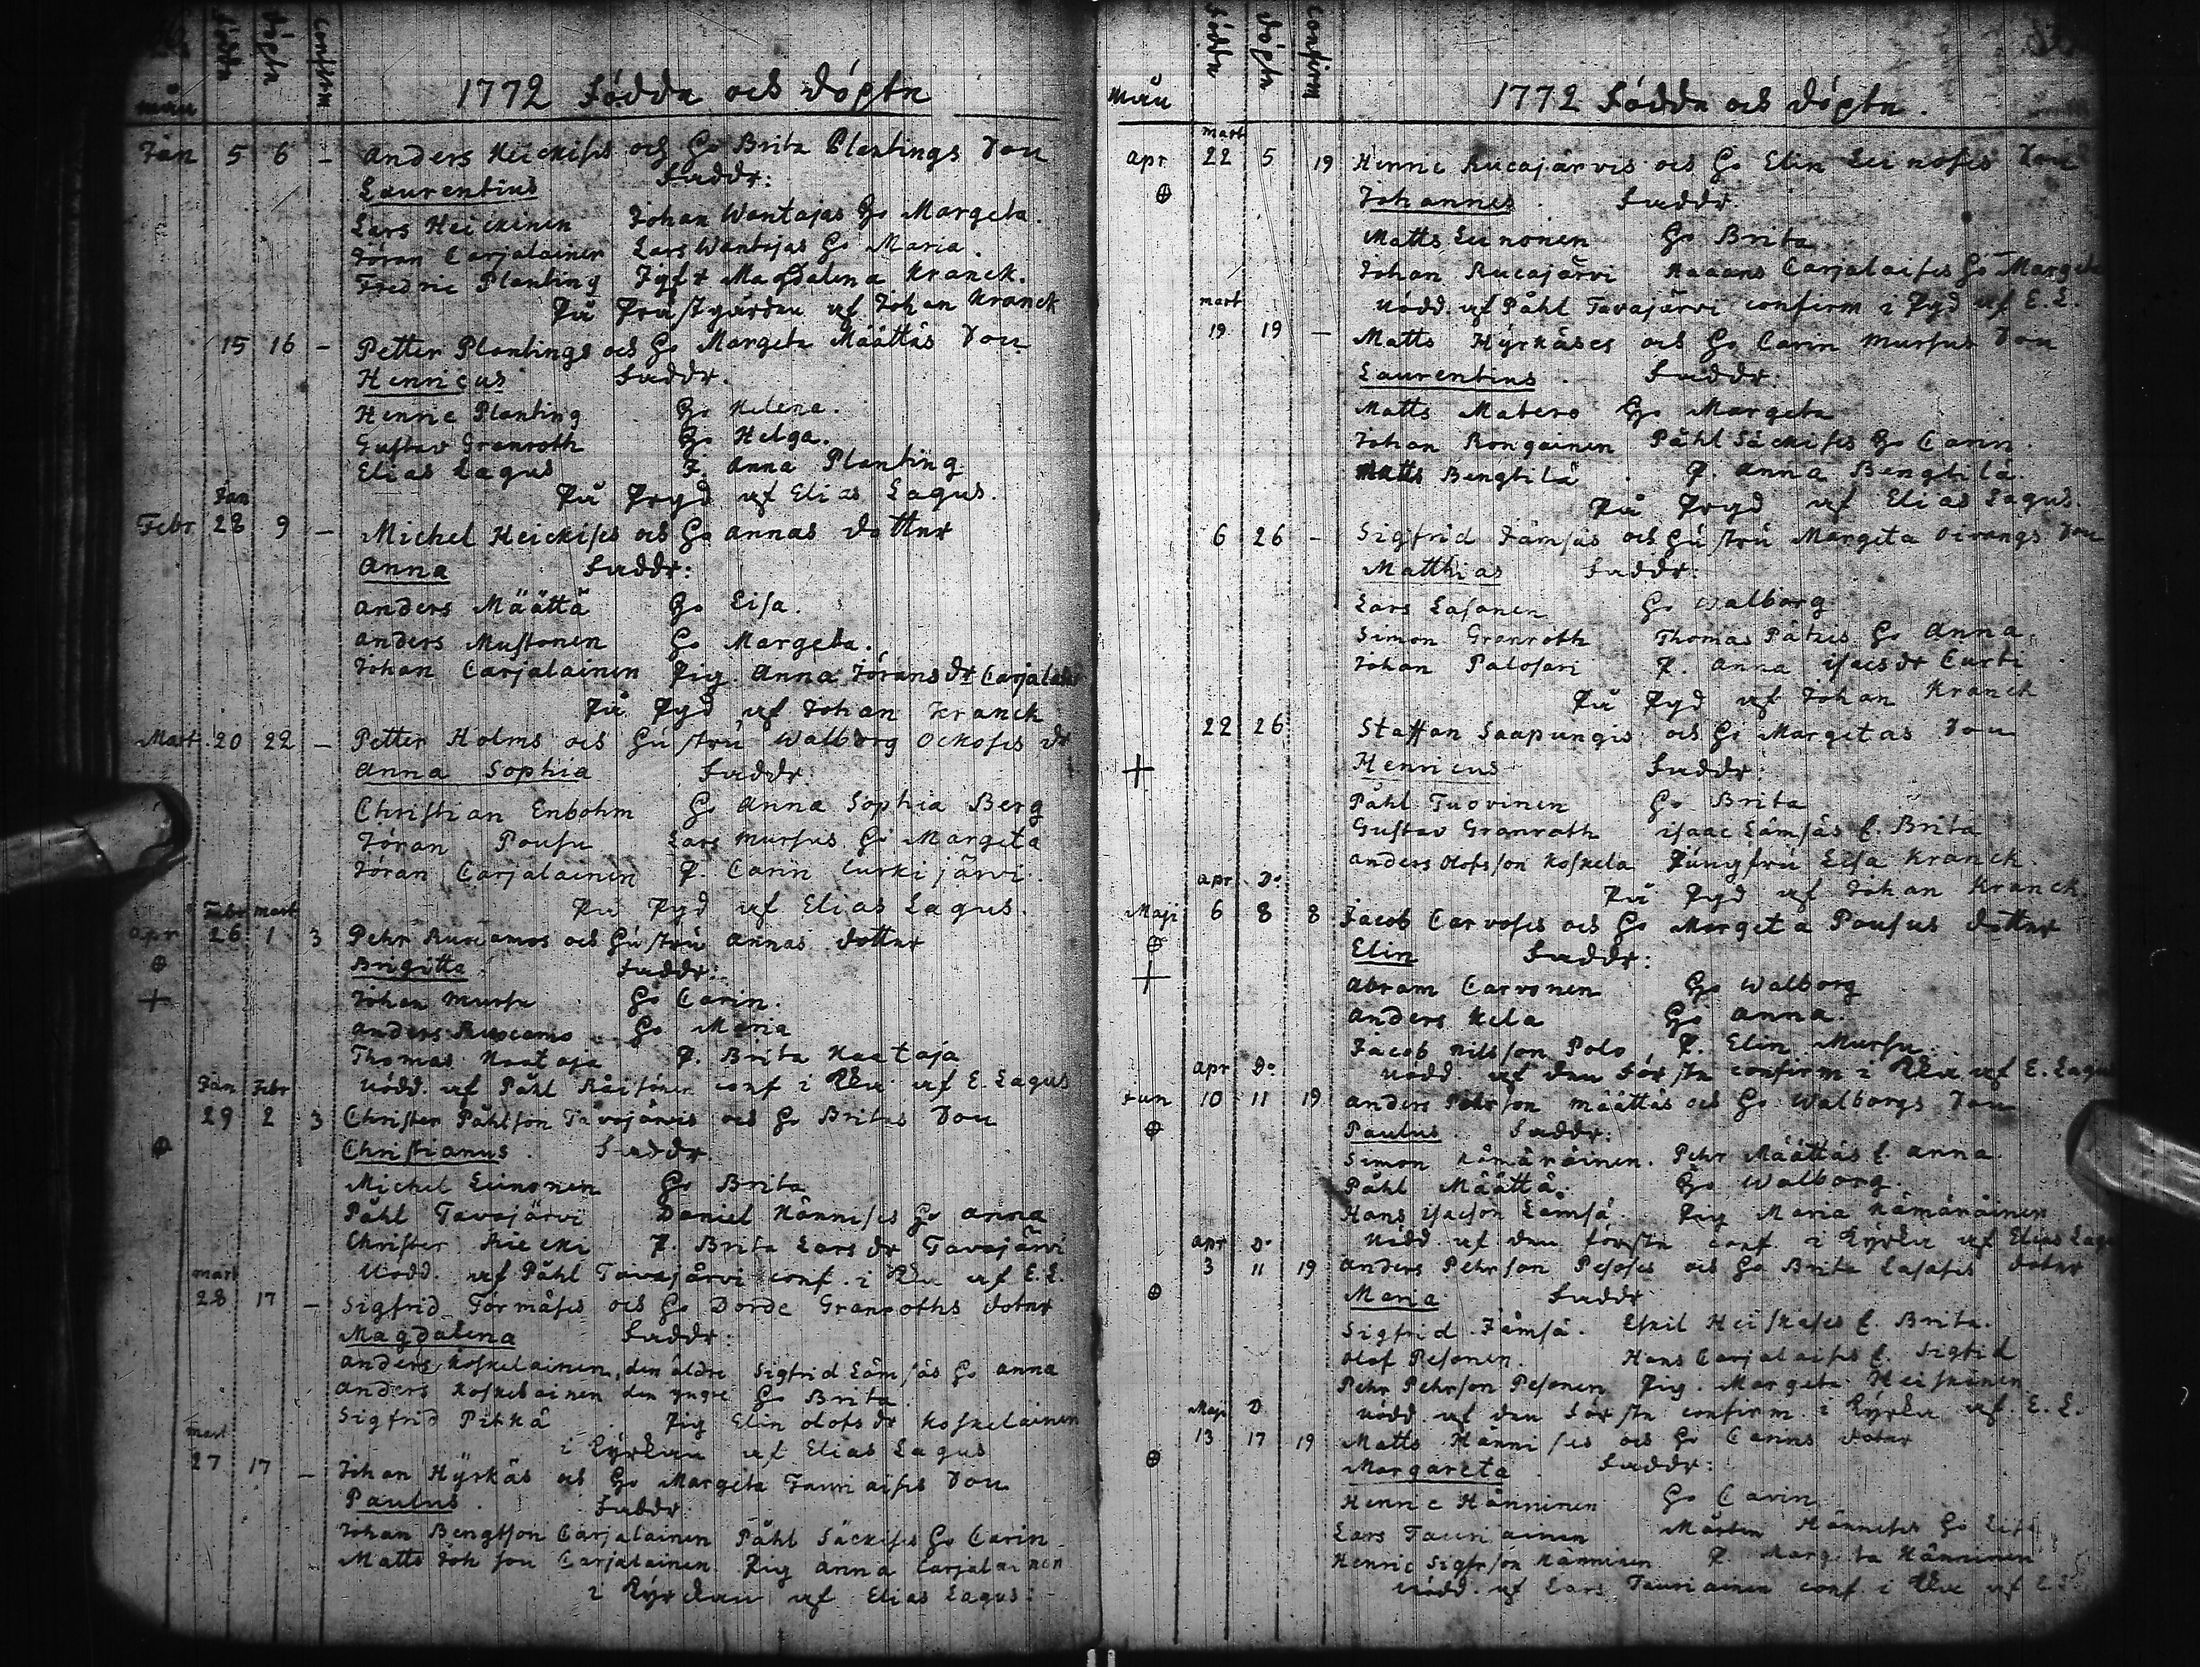 födda
döpta
Confirm
mån
1772 födda och döpta
Jan 5 6 - Anders Heickises och Ho Brita Plantings son
Laurentius faddr:
Lars Heickinen Johan Wantajas Ho Margeta.
Jöran Carjalainen Lars Wantajas Ho Maria.
Fredric Planting Jgfr Magdalena Kranck.
På Prästgården af Johan Kranck
15 16 - Petter Plantings och Ho Margeta Määttäs son
Henricus faddr.
Henric Planting Ho Helena.
Gustav Granroth Ho Helga.
Elias Lagus J. Anna Planting
På Prgd af Elias Lagus.
Jan
Febr 28 9 - Michel Heickises och Ho Annas dotter
Anna faddr:
Anders Määttä Ho Lisa.
Anders Mustonen Ho Margeta.
Johan Carjalainen Pig. Anna Jörans dr
På Pgd af Johan Kranck
Mart. 20 22 - Petter Holms och Hustru Walborg Ockoses dr
Anna Sophia faddr
Christian Enbohm Ho Anna Sophia Berg
Jöran Pousu Lars Mursus Ho Margeta
Jöran Carjalainen P. Carin Curkijärvi.
På Pgd af Elias Lagus.
Febr Mart
Apr 26 1 3 Pehr Ruocamos och Hustru Annas dotter
Brigitta faddr:
+ Johan Mursu Ho Carin.
Anders Ruocamo Ho Maria
Thomas Naataja P. Brita Naataja
Nödd. af Påhl Räisönen conf i Kka af E. Lagus
Jan Febr
29 2 3 Christer Påhlson Tavajärvis och Ho Britas son
Christianus. faddr.
Michel Leinonen Ho Brita
Påhl Tavajärvi Daniel Hännises Ho Anna
Christer Kiecki P. Brita Lars dr Tavajärvi
Nödd. af Påhl Tavajärvi conf. i Kka af E.L.
Mart
28 17 - Sigfrid Törmäses och Ho Dorde Granroths doter
Magdalena faddr:
Anders Koskelainen, den äldre Sigfrid Lämsäs Ho Anna
Anders Koskelainen den yngre Ho Brita
Sigfrid Pitkä . Pig Elin Olofs dr Koskelainen
i Kyrkan af Elias Lagus
Mart
27 17 - Johan Hyrkäs och Ho Margeta Tauriaises son
Paulus. faddr:
Johan Bengtson Carjalainen Påhl Säckises Ho Carin
Matts Joh son Carjalainen. Pig Anna Carjalainen
i Kyrckan af Elias Lagus.
födda
döpta
Confirm
Mån
1772 födda och döpta.
Mart
Apr 22 5 19 Henric Rucajärvis och Ho Elin Leinoses son
Johannes. faddr.
Matts Leinonen Ho Brita
Johan Rucajärvi Carjalaises Ho Margeta
Nödd. af Påhl Tavajärvi conferm i Pgd af E.L.
Mart
19 19 - Matts Hyrkäses och Ho Carin Mursus son
Laurentius. faddr:
Matts Matero Ho Margeta
Johan Rongainen Påhl Säckises Ho Carin
Matts Bengtilä . P. Anna Bengtilä.
På Prgd af Elias Lagus.
6 26 - Sigfrid Jämsäs och Hustru Margeta Oivangs son
Matthias faddr:
Lars Lasonen Ho Walborg
Simon Granroth Thomas Pätzis Ho Anna
Johan Palosari P. Anna Isacs dr Curti
På Pgd af Johan Kranck
22 26 Staffan Saapungis och Ho Margetas son
+ Henricus faddr:
Påhl Tuovinen Ho Brita
Gustav Granroth Isaac Lämsäs h. Brita
Anders Olofsson Koskela Jungfru Lisa Kranck.
På Pgd af Johan Kranck.
Apr Do
Maji 6 8 8 Jacob Carvoses och Ho Margeta Pousus dotter
Elin faddr:
+ Abram Carvonen Ho Walborg
Anders Kela Ho Anna.
Jacob Nilsson Polo P. Elin Mursu
Nödd af den förste confirm i Kka af E. Lagus
Apr Do
Jun 10 11 19 Anders Pehrson Määttäs och Ho Walborgs son
Paulus. faddr:
Simon Kämäräinen. Pehr Määttäs h. Anna.
Påhl Määttä. Ho Walborg.
Hans Isacson Lämsä. Pig Maria Kämäräinen
Nödd. af den förste conf. i Kyrka af Elias Lagus
Apr Do
3 11 19 Anders Pehrson Pesoses och Ho Brita Lasases doter
Maria faddr
Sigfrid Jämsä. Eskil Heiskases h. Brita.
Olof Pesonen. Hans Carjalaises h. Sigrid
Pehr Pehrson Pesonen Pig. Margeta Heiskanen
Nödd. af den förste confirm. i Kyrka af E.L.
Maji D
13 17 19 Matts Hännises och Ho Carins doter
Margareta faddr:
Henric Hänninen Ho Carin
Lars Tauriainen Mårten Hännises Ho Lisa
Henric Sigfrson Hänninen P. Margeta Hänninen
Nödd. af Lars Tauriainen conf. i Kka af E.L.